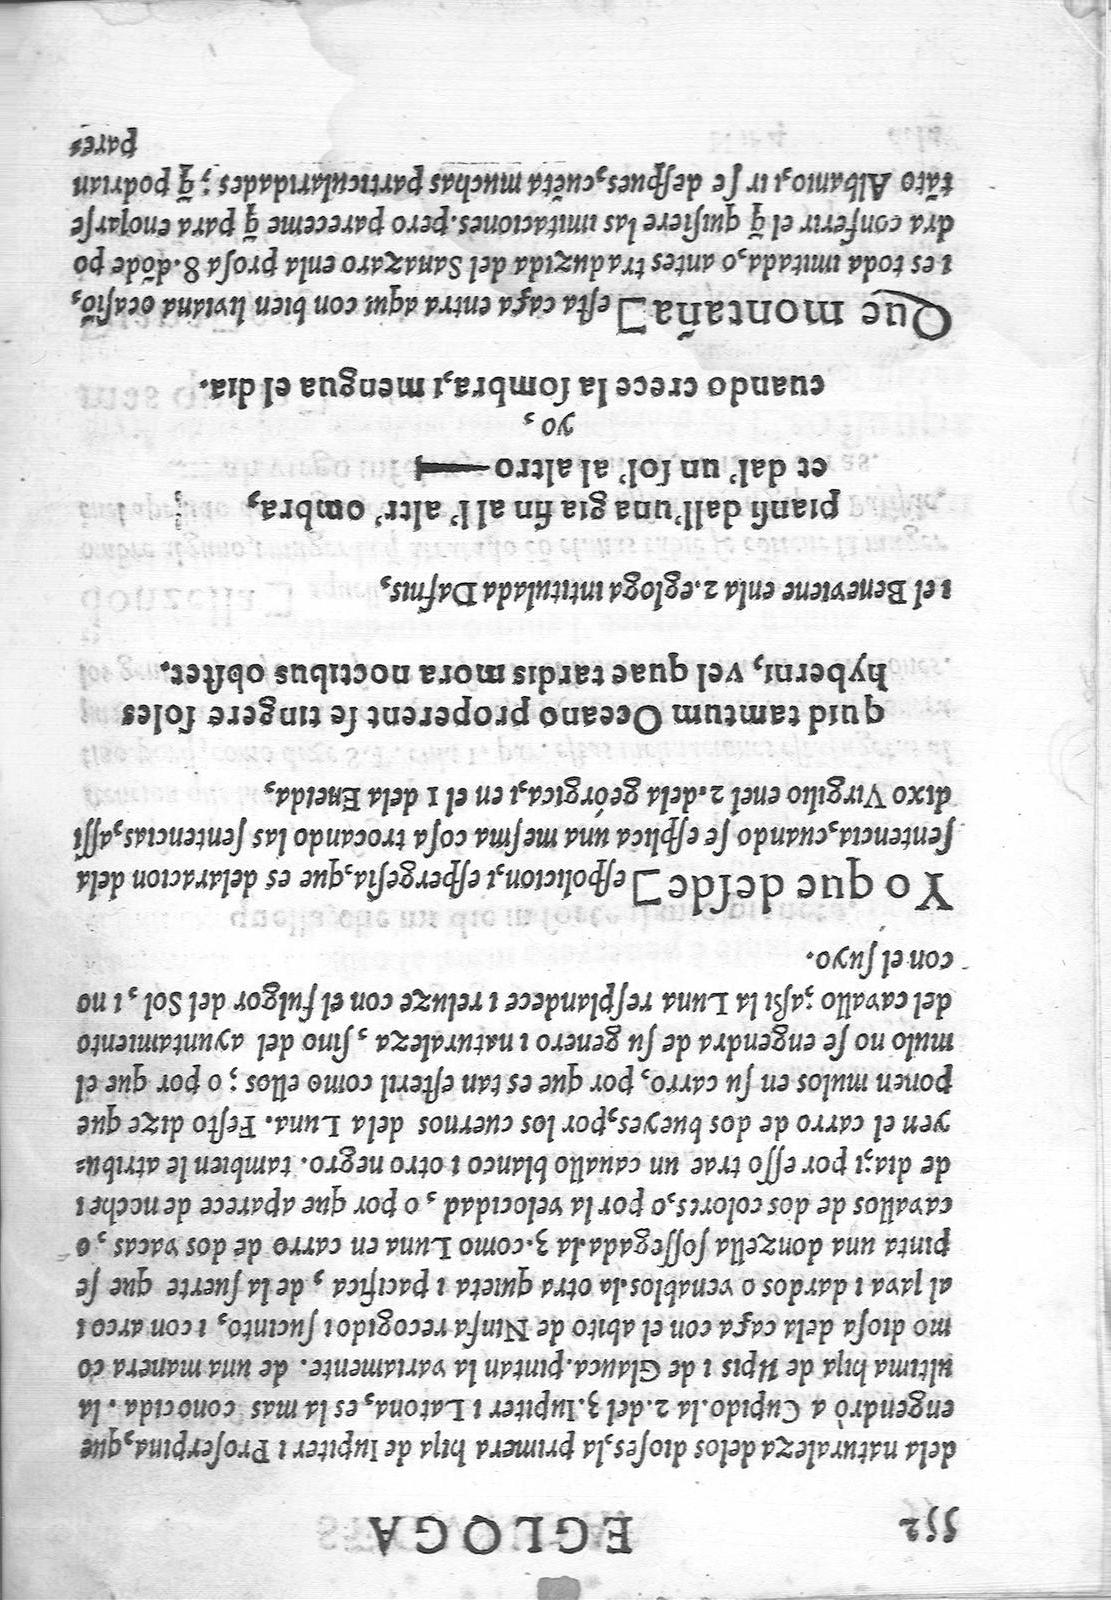 552 EGLOGA
dela naturaleza delos dioſes, la primera hija de Iupiter i Proſerpina, que
engendrò a Cupido. la 2. del 3. Iupiter i Latona, es la mas conocida. la
ultima hija de Upis i de Glauca. pintan la variamente. de una manera cō
mo dioſa dela caça con el abito de Ninfa recogido i ſucinto, i con arco i
aljava i dardos o venablos. la otra quieta i pacifica, de la ſuerte que ſe
pinta una donzella ſoſſegada. la 3. como Luna en carro de dos vacas, o
cavallos de dos colores, o por la velocidad, o por que aparece de noche i
de dia; i por eſſo trae un cauallo blanco i otro negro. tambien le atribu-
yen el carro de dos bueyes, por los cuernos dela Luna. Feſto dize que
ponen mulos en ſu carro, por que es tan eſteril como ellos; o por que el
mulo no ſe engendra de ſu genero i naturaleza, ſino del ayuntamiento
del cavallo; aßi la Luna reſplandece i reluze con el fulgor del Sol, i no
con el ſuyo.
Yo que deſde] eſpolicion, i eſpergeſia, que es delaracion dela
ſentencia, cuando ſe eſplica una meſma coſa trocando las ſentencias, aſſi
dixo Virgilio enel 2. dela geórgica, i en el 1 dela Eneida,
quid tamtum Oceano properent ſe tingere ſoles
hyberni, vel quae tardis mora noctibus obſtet.
i el Beneviene enla 2. egloga intitulada Dafnis,
pianſi dall'una gia fin all' altr' ombra,
et dal' un ſol' al altro
yo,
cuando crece la ſombra, i mengua el dia.
Que montaña] eſta caça entra aqui con bien liviana ocaſiō,
i es toda imitada, o antes traduzida del Sanazaro enla proſa 8. dōde po
dra conferir el q̄ quiſiere las imitaciones. pero pareceme q̄ para enojarſe
tāto Albanio, i ir ſe deſpues, cuēta muchas particularidades; q̄ podrian
pares-